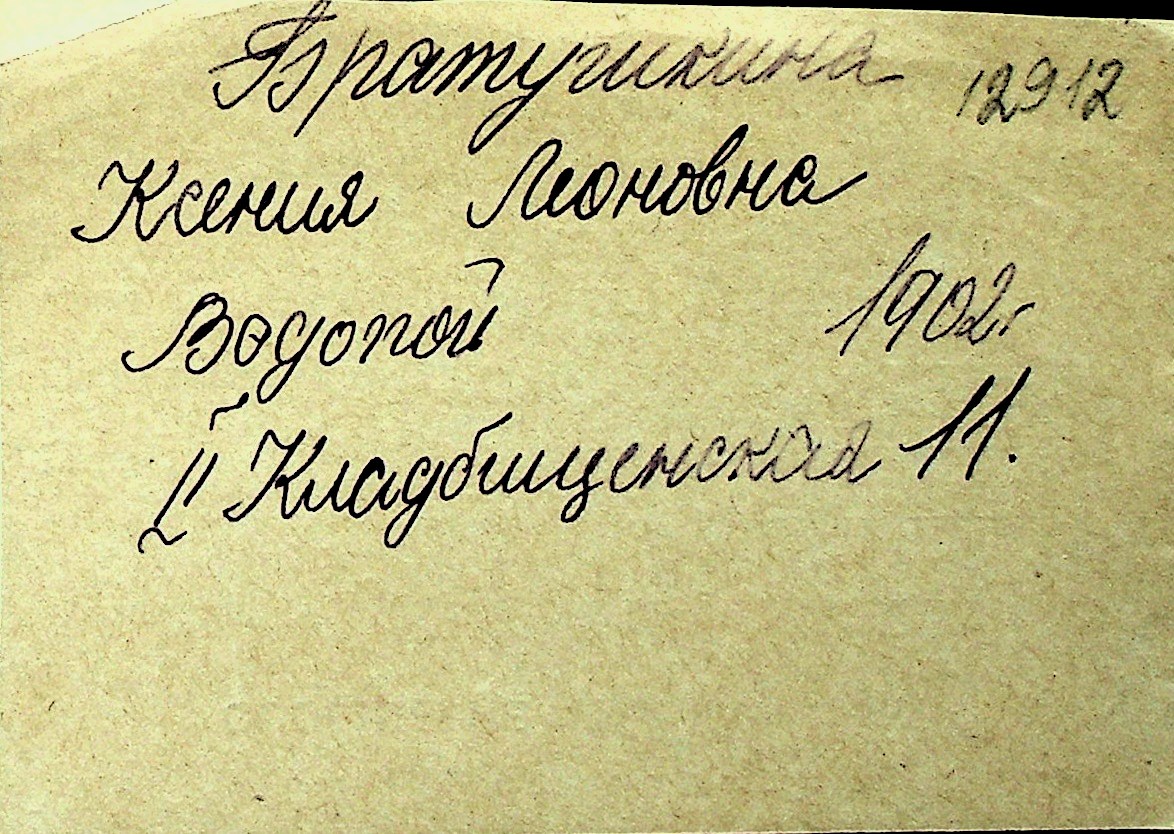 Братушкина 12912
Ксения Леоновна
Водопой 1902г
II Кладбищенская 11.